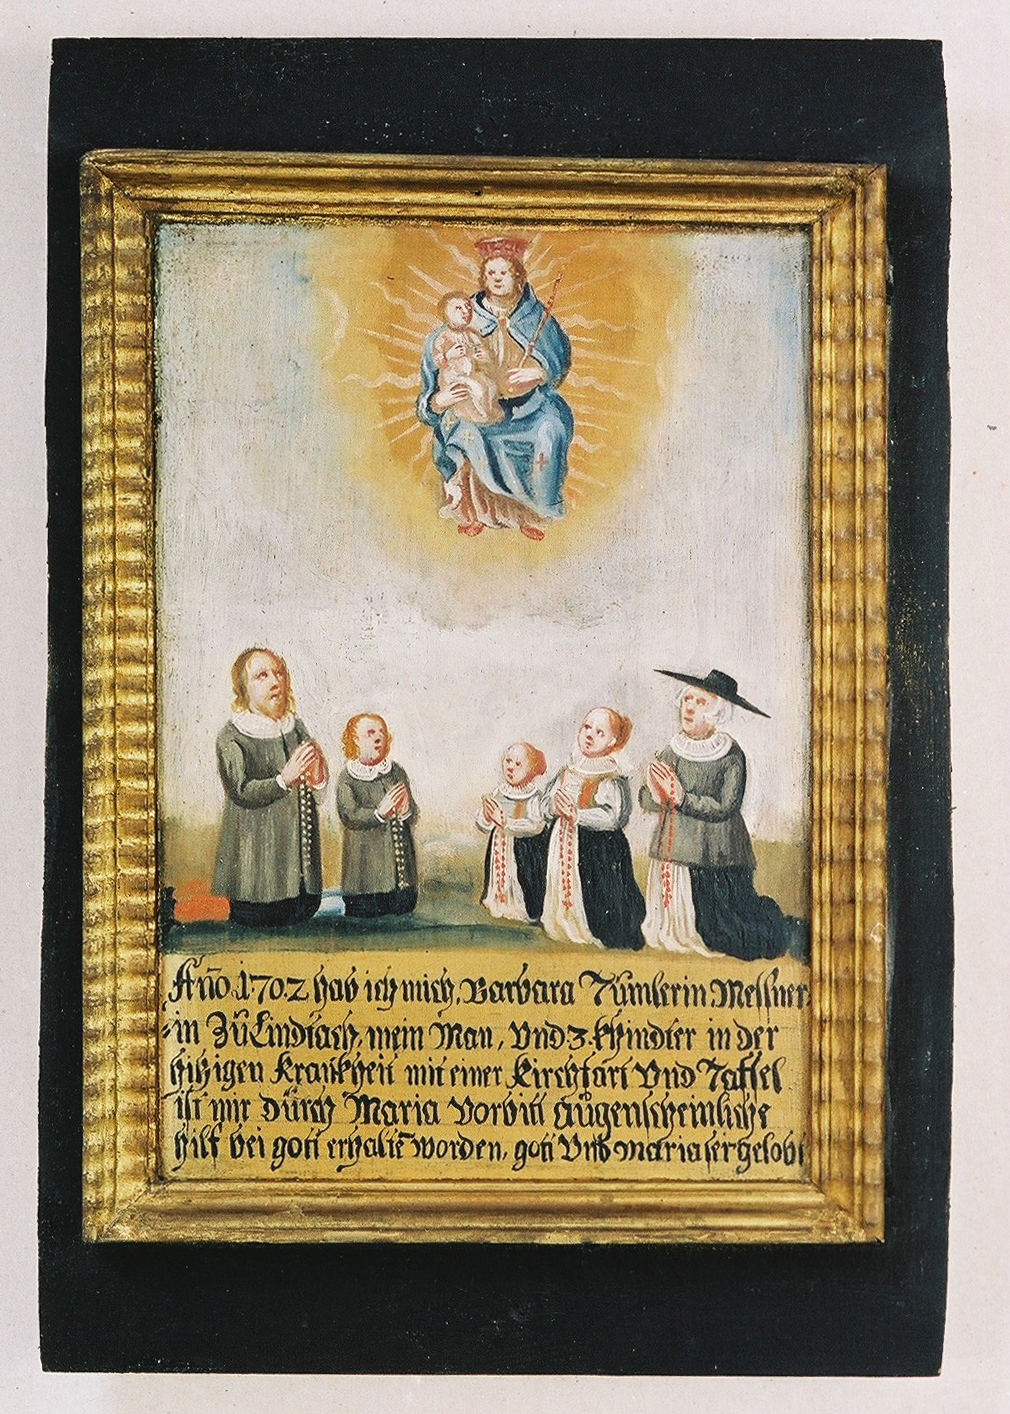 Año 1702 hab ich mich, Barbara Tümlerin Messner:
=in Zů Lindtach, mein Man, Vnd 3. Khindter in der
hitzigen Krankheit mit einer Kirchfart Vnd Taffel
ist mir Dürch Maria Vorbitt Augenscheinliche
hilf bei gott erhaltē worden, gott Vnd Maria sei gelobt